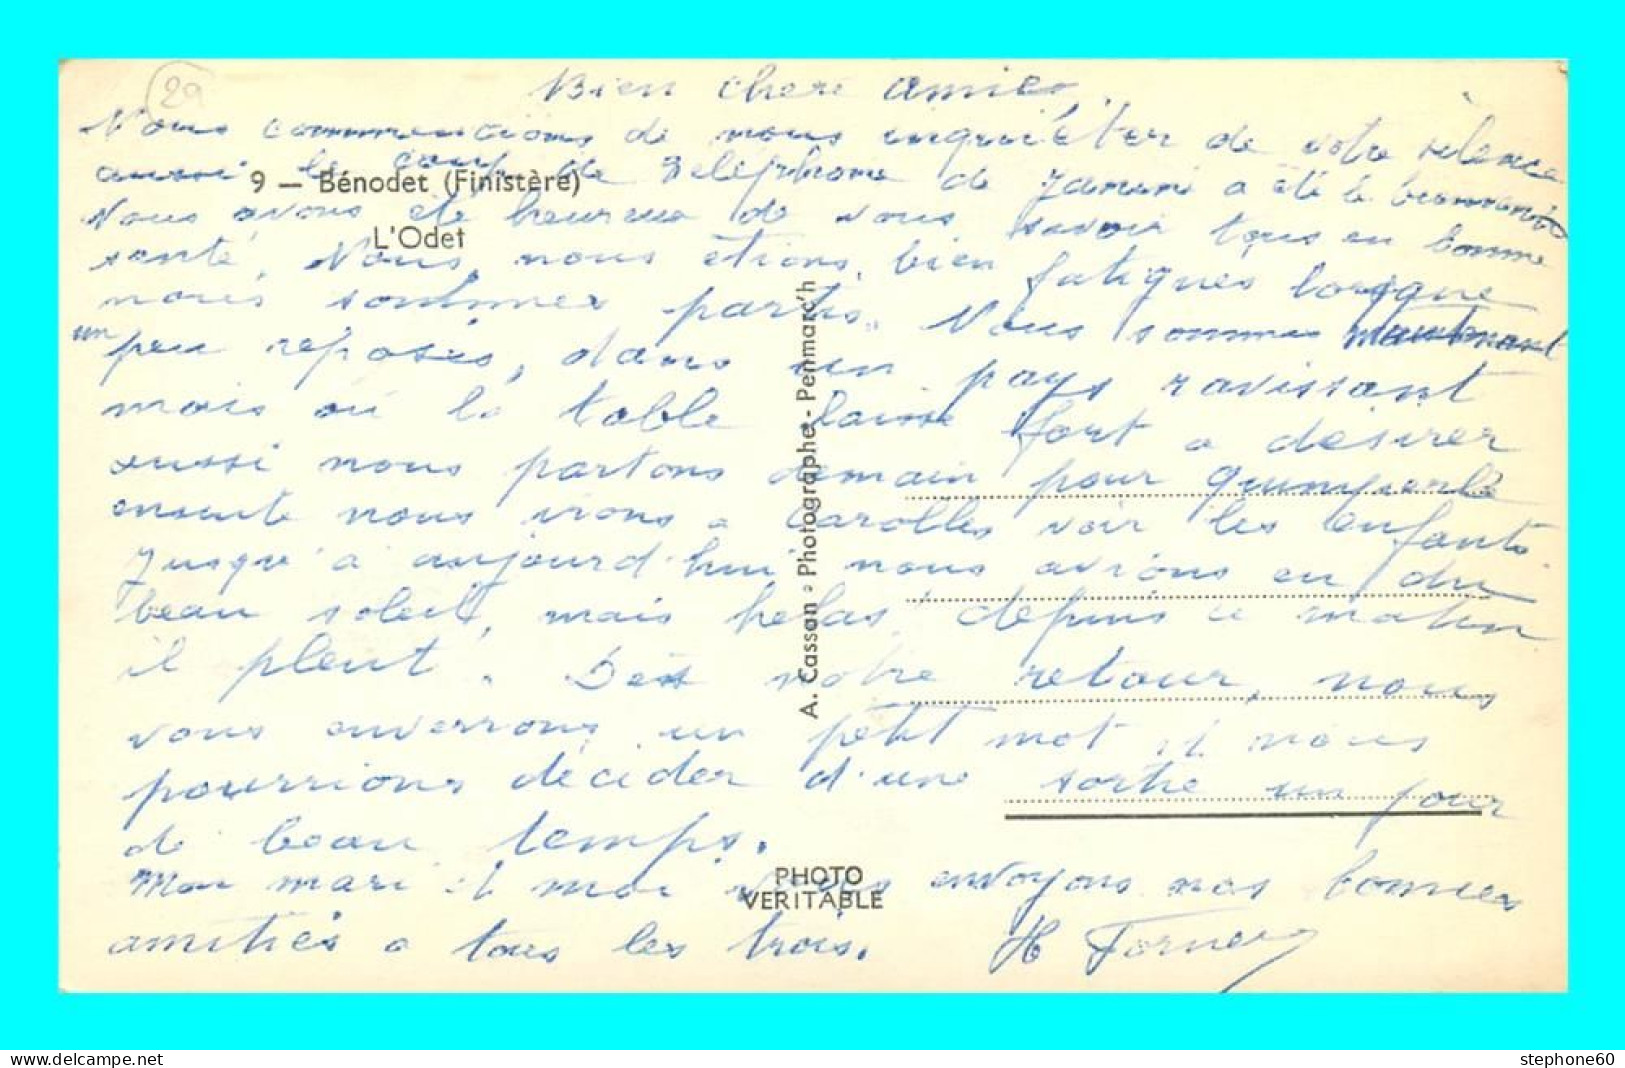 29
Bien chere amie,
Nous commencions de nous inquiéter de votre silence
aussi le coup de telephone de Janine a été le bienvenu
9 — Bénodet (Finistère)
Nous avons été heureux de vous savoir tous en bonne
L'Odet
santé, Nous, nous etions, bien fatigues lorsque
nous sommes partis. Nous sommes maintenant
un peu reposés, dans un pays ravissant
mais où la table laisse fort a désirer
aussi nous partons demain pour Quimperlé
ensuite nous irons a Carolles voir les enfants
Jusqu'a aujourd'hui nous avions eu du
beau soleil, mais helas depuis ce matin
il pleut. Dès notre retour, nous
vous enverrons un petit mot et nous
pourrions décider d'une sortie un jour
de beau temps.
Mon mari et moi vous envoyons nos bonnes
amitiés a tous les trois. H
A. Cassan - Photographe - Penmarc'h
PHOTO
VERITABLE
delcampe.net
stephone60